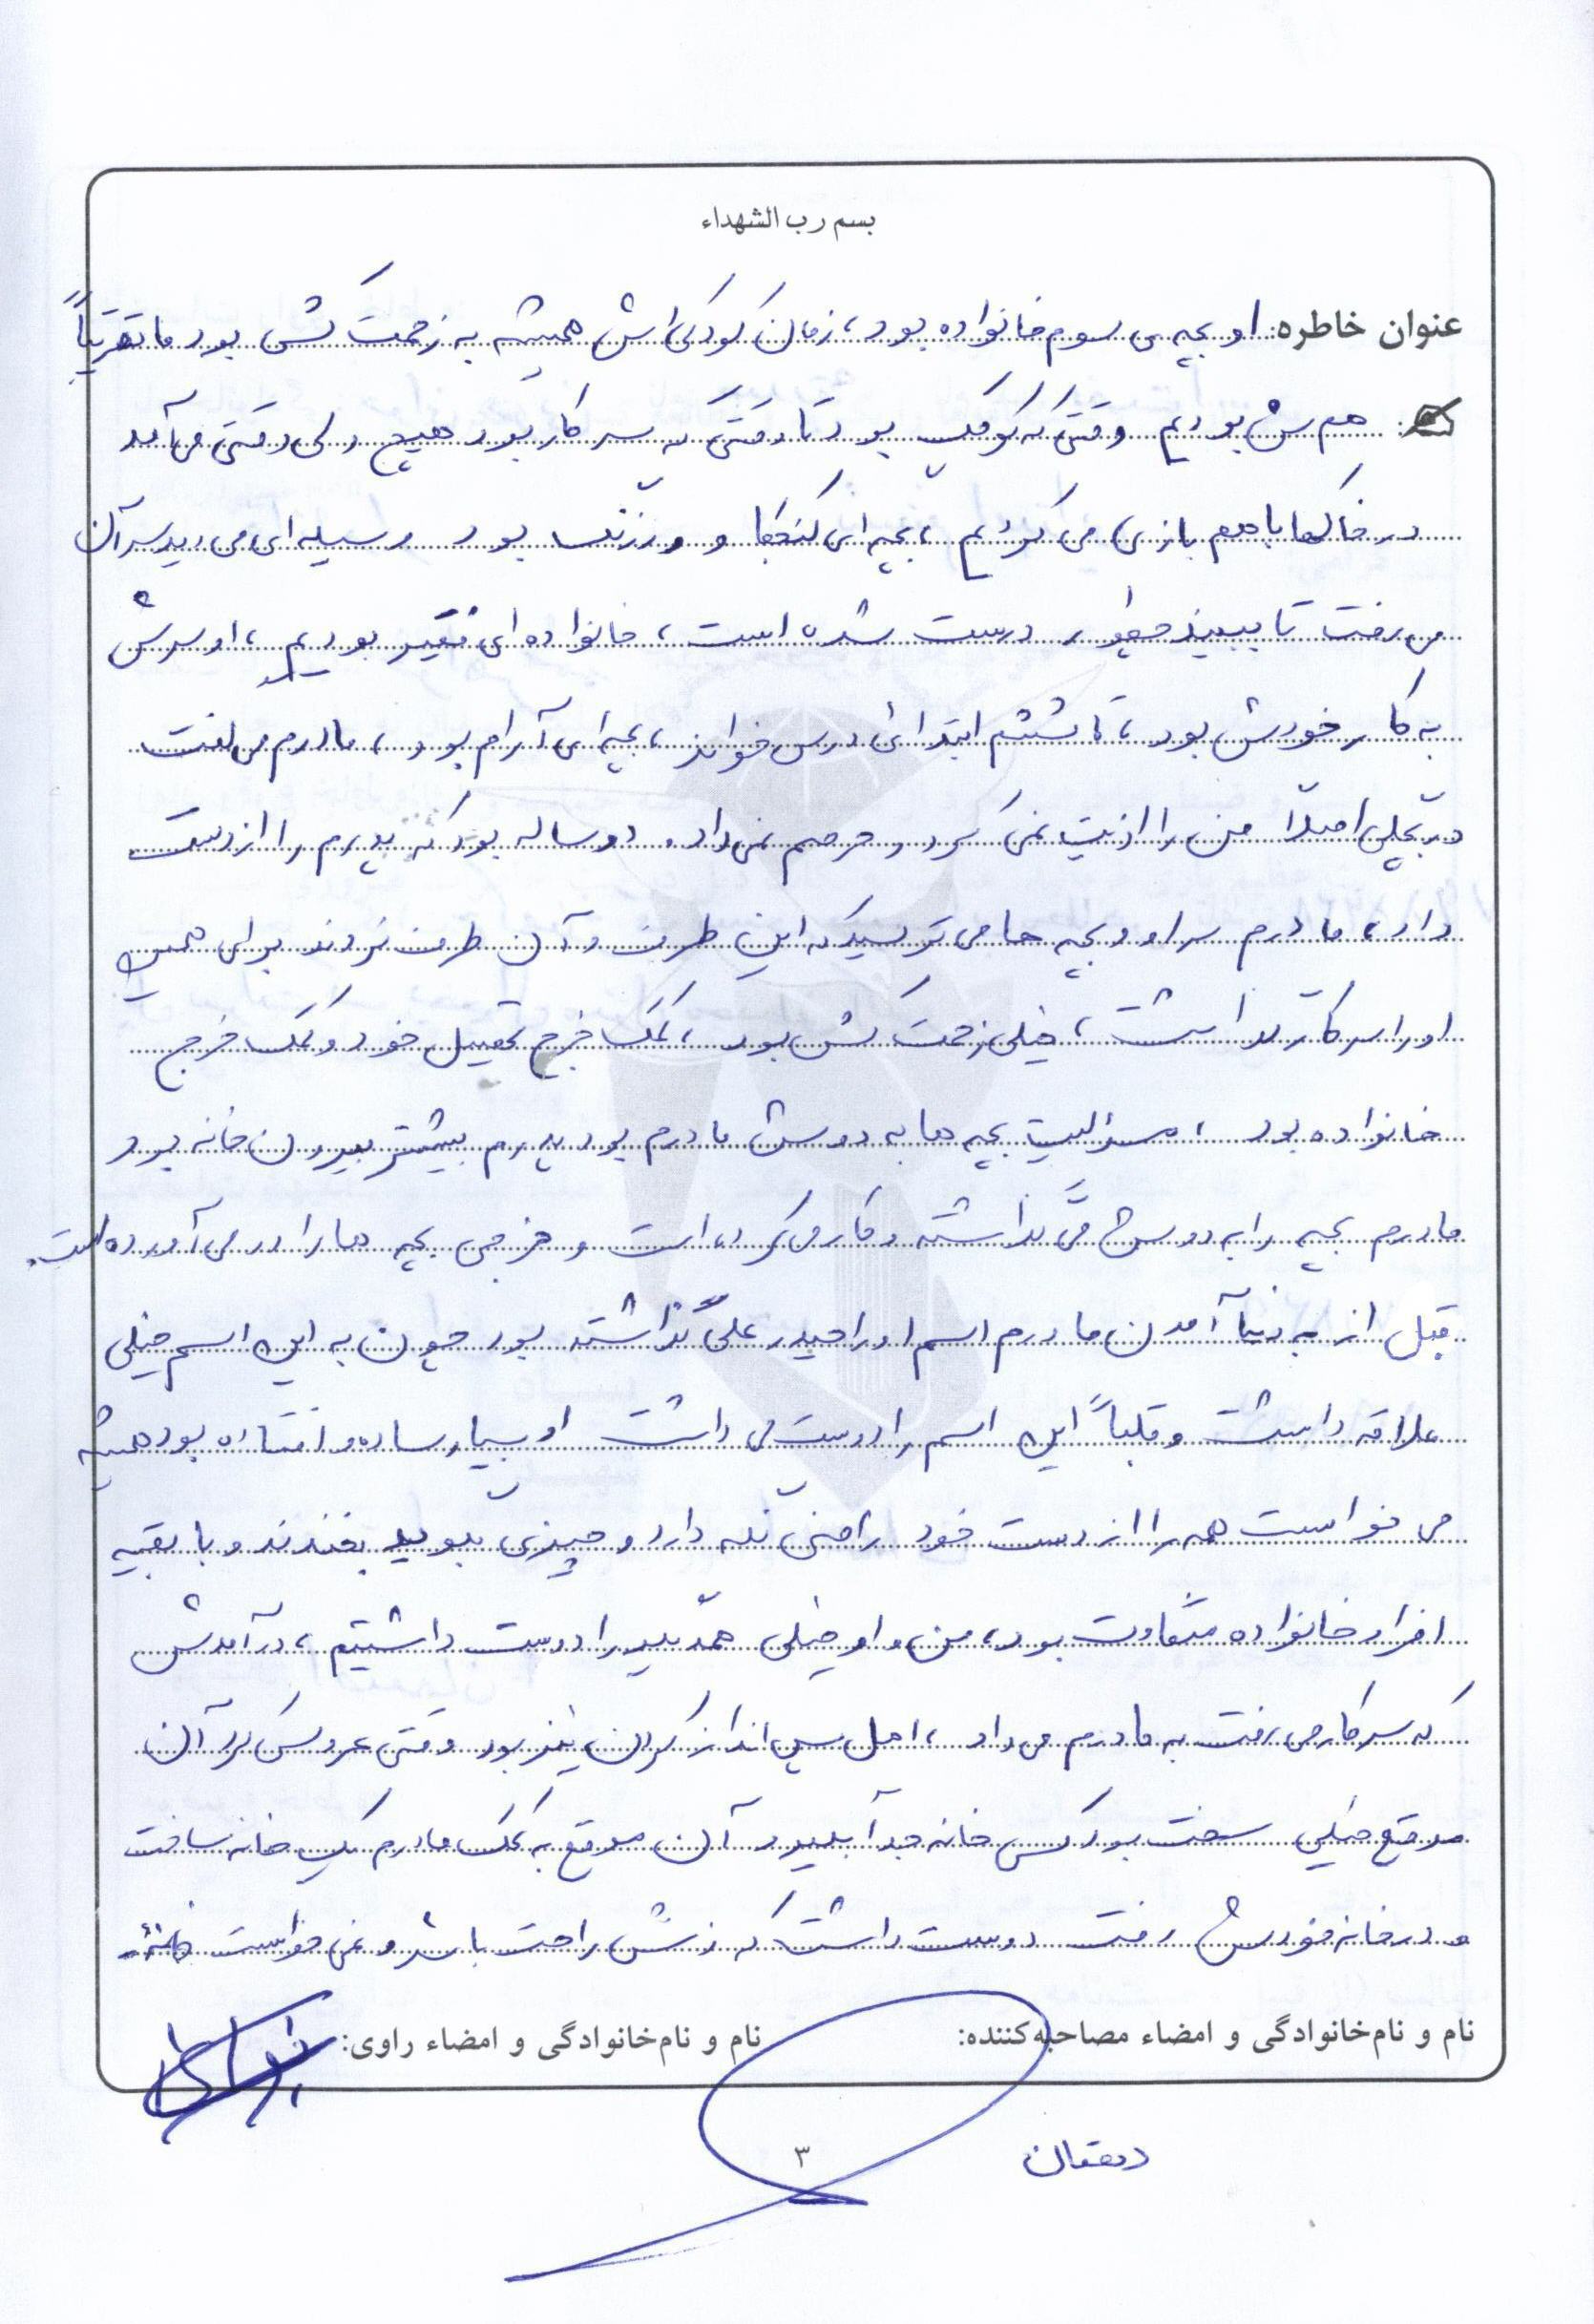 بسم رب الشهداء
عنوان خاطره: او بچه ی سوم خانواده بود، زمان کودکی اش همیشه به زحمت کش بود ما تقریباً
هم سن بودیم وقتی که کوچک بود تا وقتی که سر کار بود هیچ ولی وقتی می آمد
در خاکها با هم بازی می کردیم، بچه ای کنجکاو و زرنگ بود وسیله ای می دید سر آن
می رفت تا ببیند چطور درست شده است، خانواده ای فقیر بودیم، او سرش
به کار خودش بود، تا ششم ابتدائی درس خواند، بچه ای آرام بود، مادرم می گفت
در بچگی اصلاً من را اذیت نمی کرد و حرصم نمی داد. دو ساله بود که پدرم را از دست
داد، مادرم سر او و بچه ها می ترسید که این طرف و آن طرف نروند برای همین
او را سر کار گذاشت، خیلی زحمت کش بود، کمک خرج تحصیل خود و کمک خرج
خانواده بود، مسئولیت بچه ها به دوش مادرم بود پدرم بیشتر بیرون خانه بود
مادرم بچه را به دوش می گذاشته و کار می کرده است و خرجی بچه ها را در می آورده است.
قبل از به دنیا آمدن مادرم اسم او را حیدر علی گذاشته بود چون به این اسم خیلی
علاقه داشت و قلباً این اسم را دوست می داشت او بسیار ساده و افتاده بود همیشه
می خواست همه را از دست خود راضی نگه دارد و چیزی بگوید بخندند و با بقیه
افراد خانواده متفاوت بود، من و او خیلی همدیگر را دوست داشتیم، درآمدش
که سر کار می رفت به مادرم می داد، اهل پس انداز کردن نیز بود وقتی عروسی کرد آن
موقع خیلی سخت بود کسی خانه جدا بگیرد آن موقع به کمک مادرم یک خانه ساخت
و در خانه خودش رفت دوست داشت که زنش راحت باشد و نمی خواست
نام و نام‌خانوادگی و امضاء مصاحبه‌کننده: نام و نام‌خانوادگی و امضاء راوی:
دهقان
۳